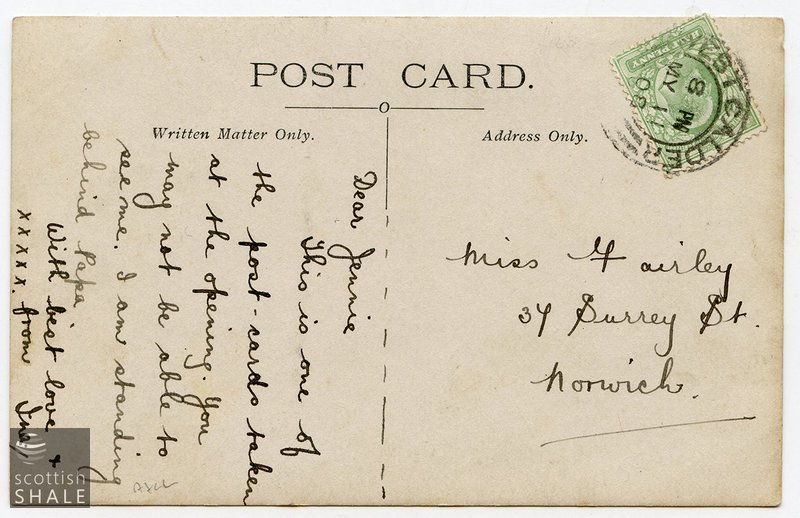 POST CARD.
Written Matter Only.
Address Only.
HALF PENNY
WEST CALDER
8 PM
MY 1
08
Dear Jennie
This is one of
the post-cards taken
at the opening. You
may not be able to
see me. I am standing
behind Papa
With best love &
xxxxx. from Ina
Miss Fairley
34 Surrey St.
Norwich.
scottish
SHALE